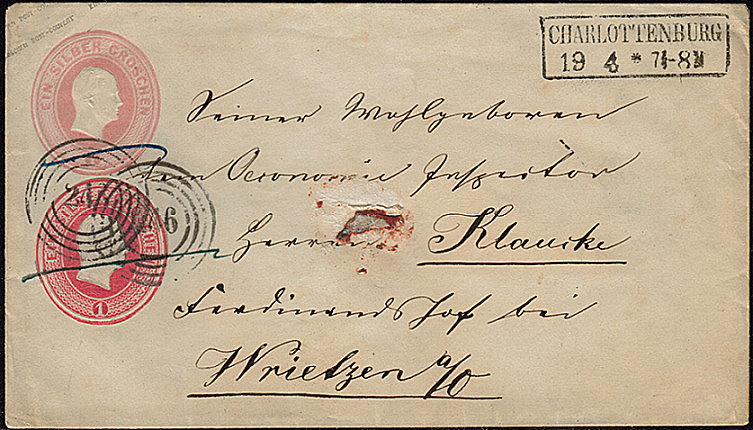 CHARLOTTENBURG
19 4 * 7-8
EIN SILBER GROSCHEN
Seiner Wohlgeboren
dem Oeconomie Inspector
Herrn Klaucke
Ferdinandshof bei
Wrietzen a/O
1